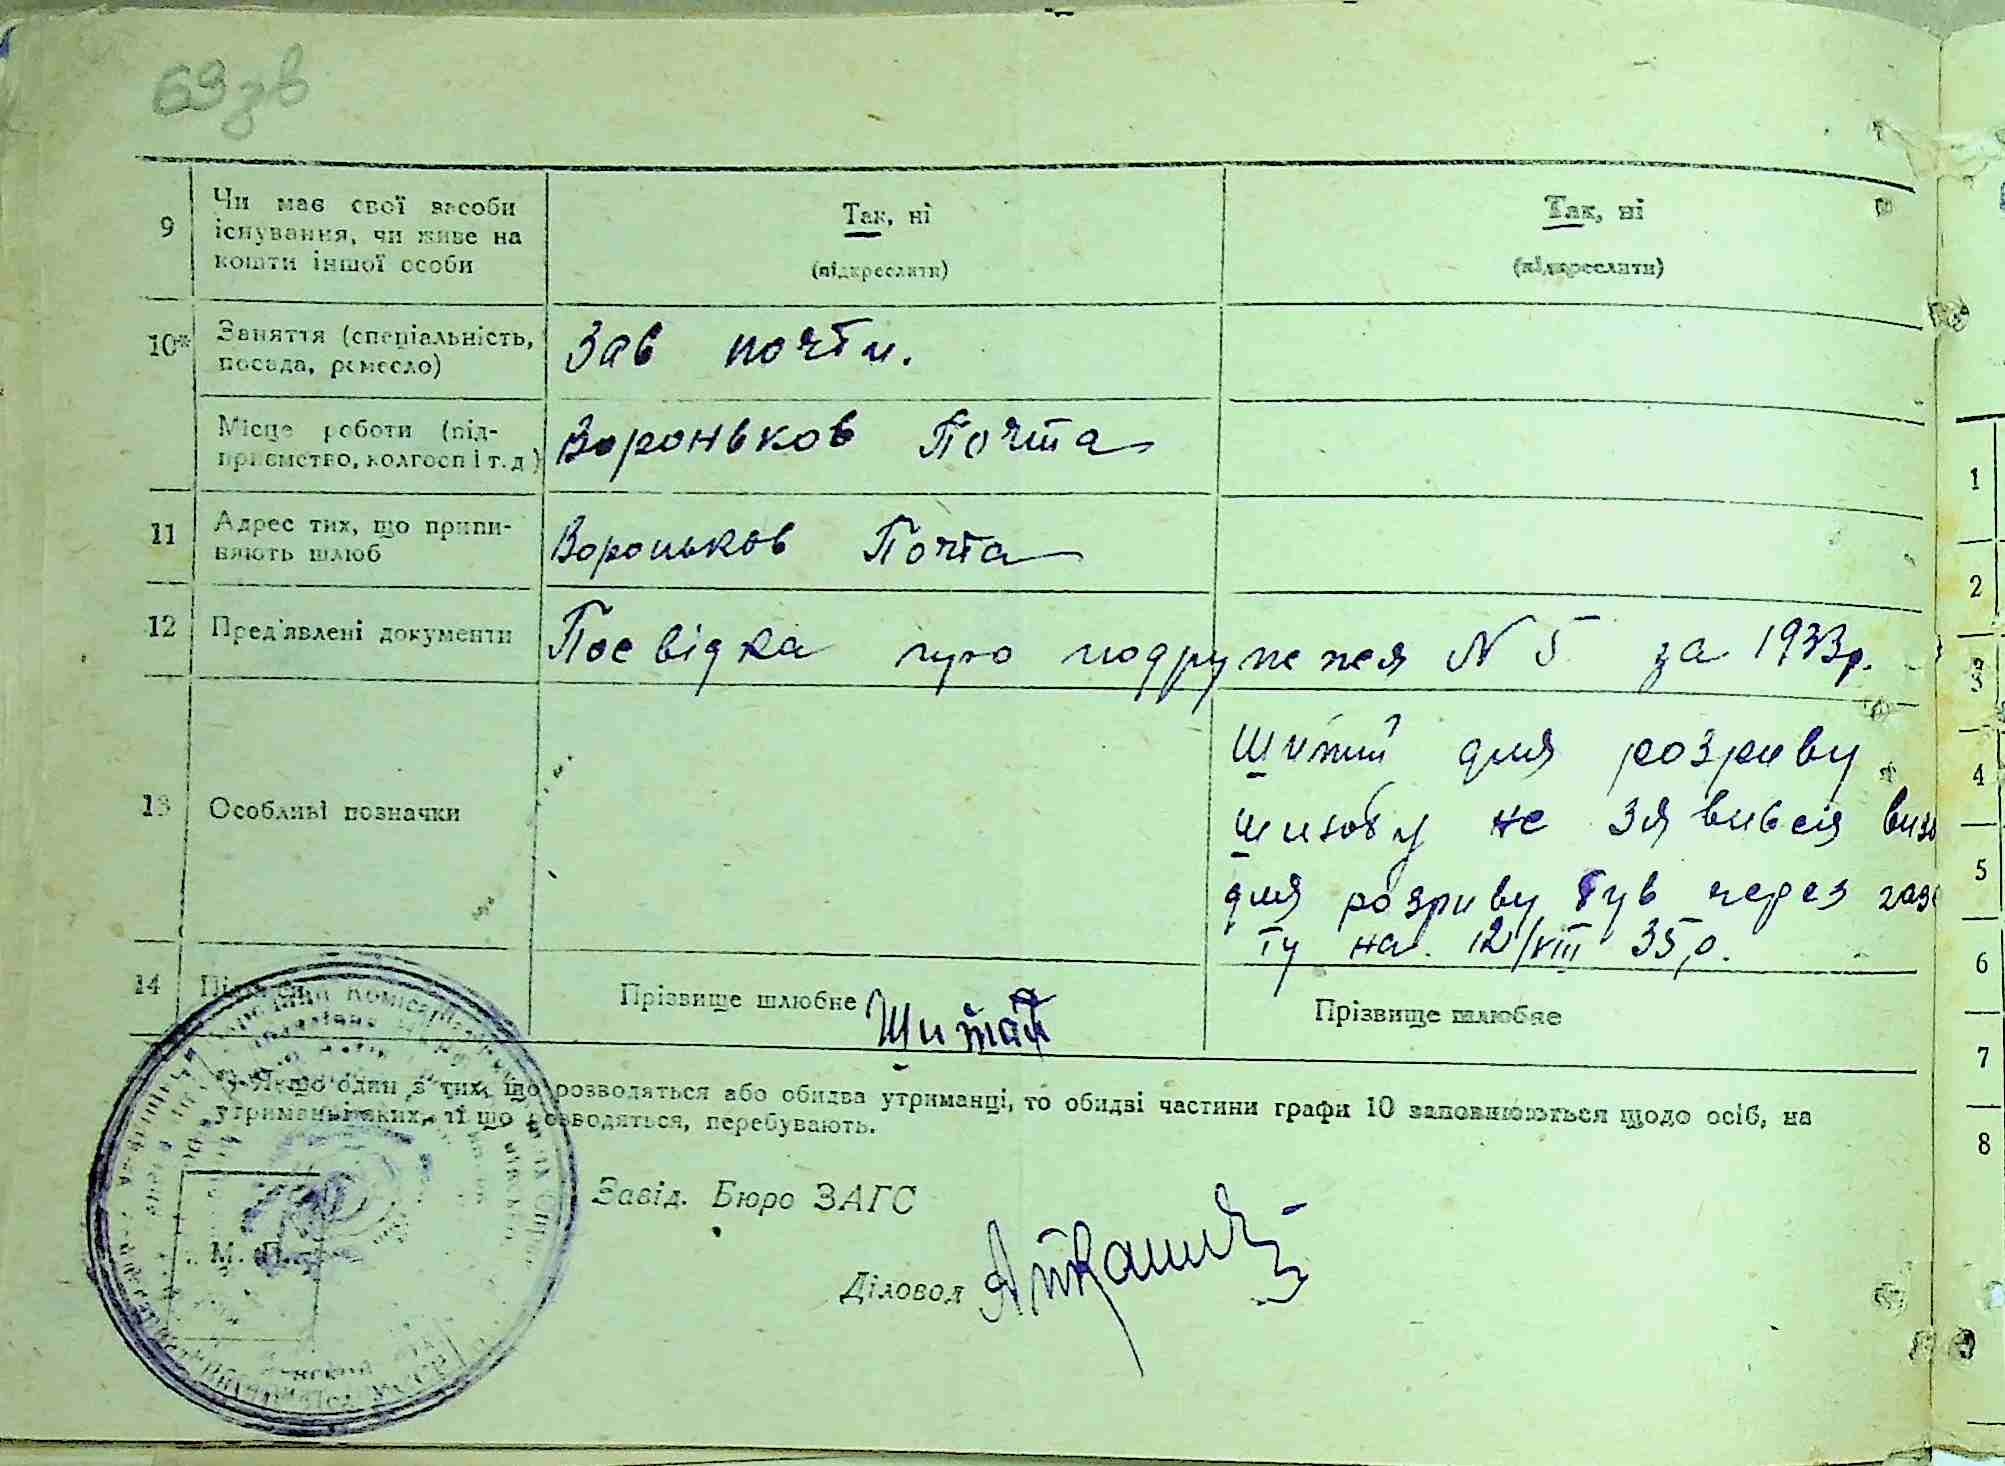 69 зв
9
Чи має свої засоби
існування, чи живе на
кошти іншої особи
Так, ні
(підкреслити)
Так, ні
(підкреслити)
10*
Заняття (спеціальність,
посада, ремесло)
Зав почти.
Місце роботи (під-
приємство, колгосп і т. д.)
Вороньков Почта
11
Адрес тих, що припи-
няють шлюб
Вороньков Почта
12
Пред'явлені документи
Посвідка про подружжя N 5 за 1933р.
13
Особливі позначки
для розриву
шлюбу не зявився
для розриву був через газе
ту на. 12/VIII 35р.
14
Прізвище шлюбне
Прізвище шлюбне
*) Якщо один з тих, що розводяться або обидва утриманці, то обидві частини графи 10 заповнюються щодо осіб, на
утриманні яких, ті що розводяться, перебувають.
Завід. Бюро ЗАГС
М. П.
Діловод
1
2
3
4
5
6
7
8